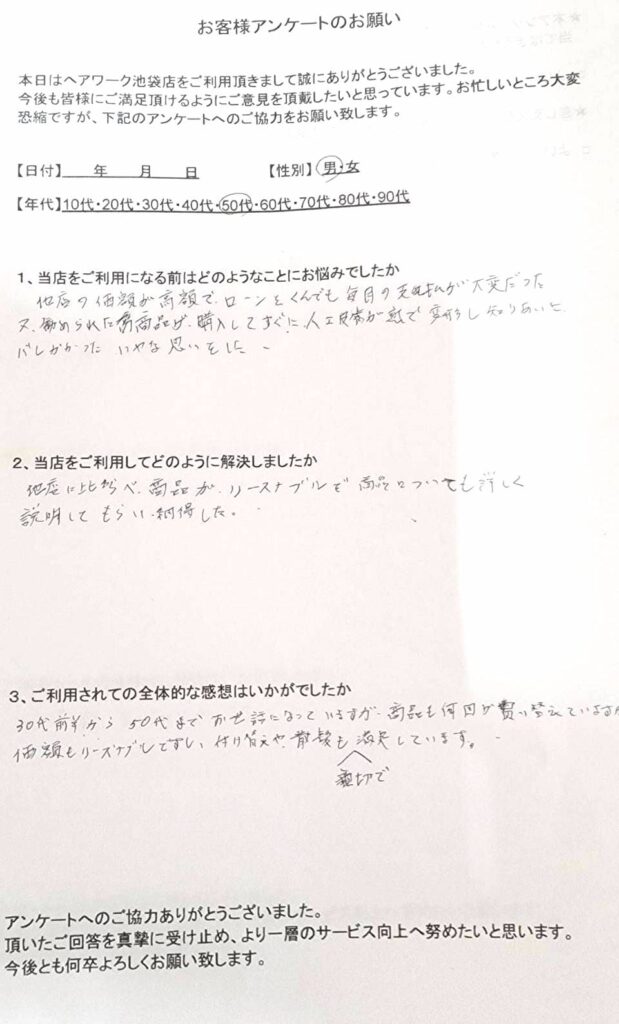 お客様アンケートのお願い
本日はヘアワーク池袋店をご利用頂きまして誠にありがとうございました。
今後も皆様にご満足頂けるようにご意見を頂戴したいと思っています。お忙しいところ大変
恐縮ですが、下記のアンケートへのご協力をお願い致します。
【日付】 年 月 日 【性別】男・女
【年代】10代・20代・30代・40代・50代・60代・70代・80代・90代
1、当店をご利用になる前はどのようなことにお悩みでしたか
他店の価額が高額で、ローンをくんでも毎月の支払が大変だった
又、勧められた商品が、購入してすぐに、人工皮膚が悪で変形し知りあいに
バレかかった いやな思いをした、
2、当店をご利用してどのように解決しましたか
他店に比らべ、商品が、リーズナブルで商品についても詳しく
説明してもらい納得した。
3、ご利用されての全体的な感想はいかがでしたか
30代前半から50代までお世話になっていますが、商品も何回か買い替えていますが
価額もリーズナブルですし、付け替えや、散髪も満足しています。
親切で
アンケートへのご協力ありがとうございました。
頂いたご回答を真摯に受け止め、より一層のサービス向上へ努めたいと思います。
今後とも何卒よろしくお願い致します。